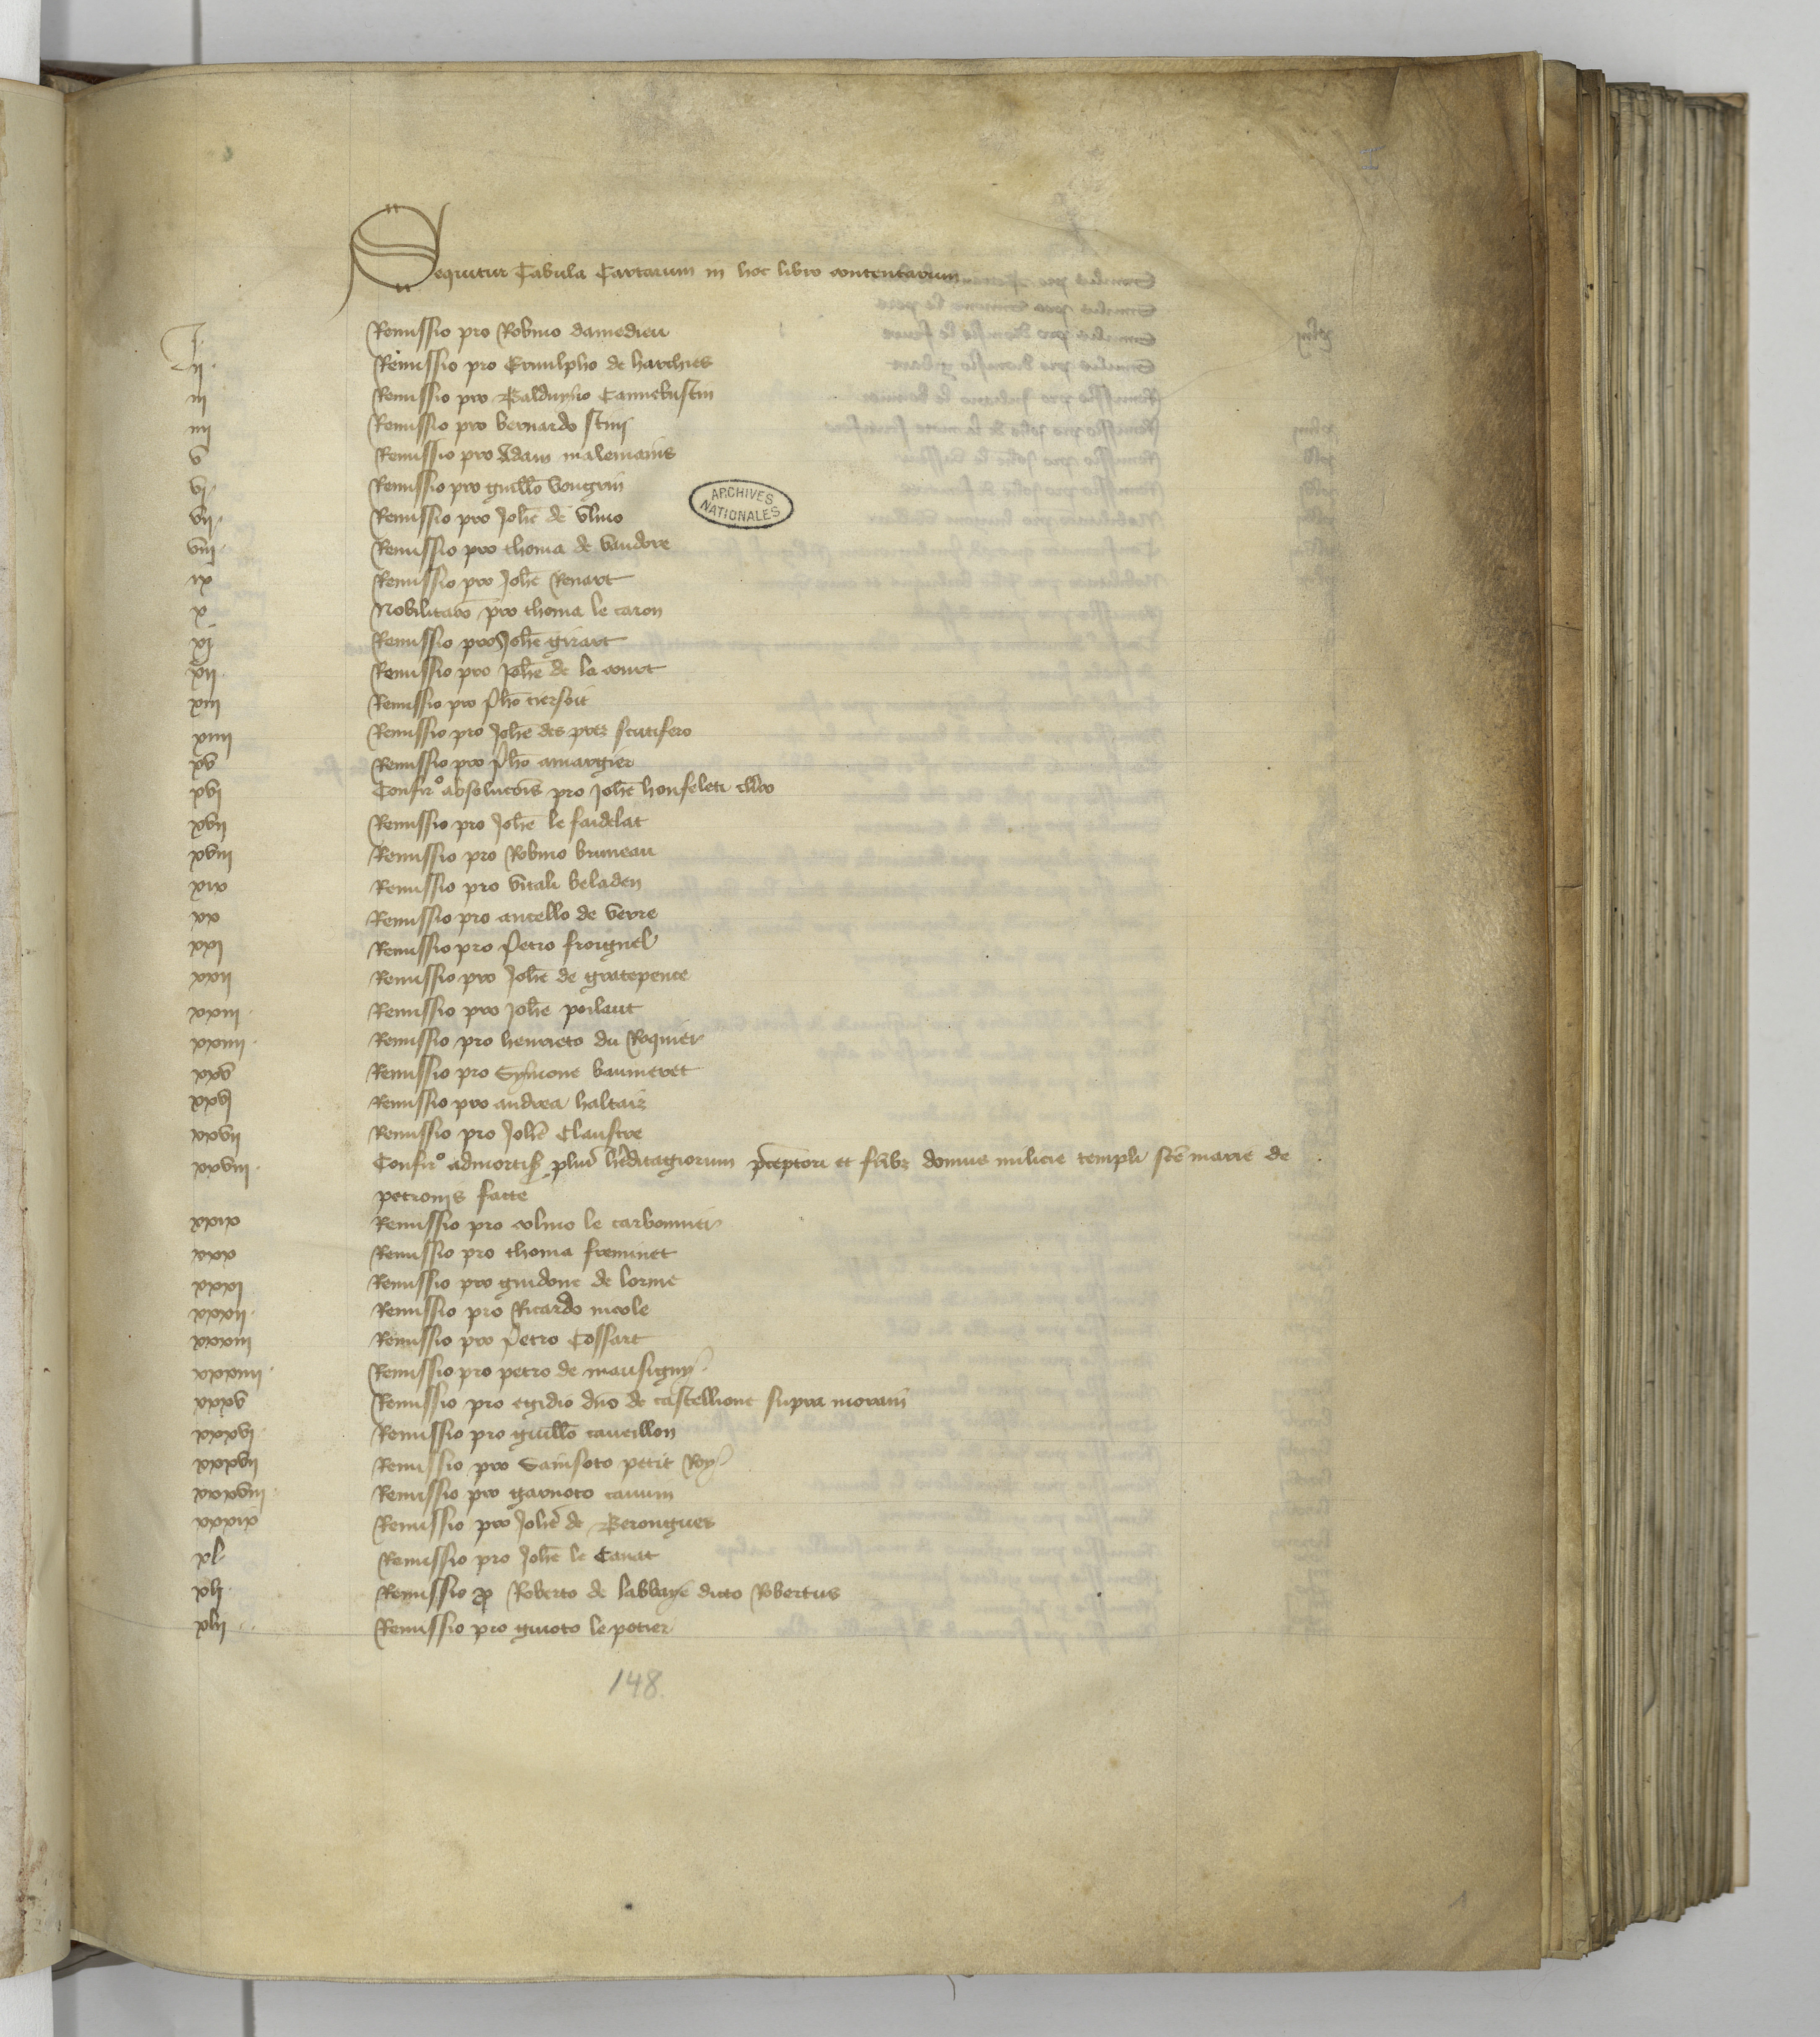 Sequitur Tabula Cartarum in hoc libro contentarum
I. Remissio pro Robino damedieu
ii. Remissio pro Ernulpho de harchies
iii Remissio pro Balduyno Cannebustin
iiii Remissio pro bernardo
v Remissio pro Adam malemains
vi. Remissio pro guillo vougrin
vii. Remissio pro Johe de Ulmo
viii. Remissio pro thoma de vaudore
ix Remissio pro Johe Renart
x Nobilitaco pro thoma le caron
xi Remissio pro Johe girart
xii. Remissio pro Johe de la court
xiii Remissio pro Pho tiersoit
xiiii Remissio pro Johe des prez scutifero
xv Remissio pro Pho amargier
xvi Confir° absolucois pro Johe honfeleti clico
xvii Remissio pro Johe le faidelat
xviii Remissio pro Robino bruneau
xix Remissio pro vitali beladen
xx Remissio pro ancello de verre
xxi Remissio pro Petro froignel
xxii Remissio pro Johe de gratepence
xxiii. Remissio pro Johe poilaut
xxiiii. Remissio pro henrieto du Roquier
xxv Remissio pro Symone baumeret
xxvi Remissio pro andrea haltaiz
xxvii Remissio pro Johe Claustre
xxviii. Confir° admortis plur heditagiorum pceptori et fribz domus milicie templi sce marie de
petronis facte
xxix Remissio pro colino le carbonnier
xxx Remissio pro thoma freminet
xxxi Remissio pro guidone de lorme
xxxii. Remissio pro Ricardo nicole
xxxiii Remissio pro Petro Cossart
xxxiiii. Remissio pro petro de mausigny
xxxv Remissio pro egidio dno de castellione supra moram
xxxvi. Remissio pro guillo caveillon
xxxvii Remissio pro Sansoto petit Roy
xxxviii. Remissio pro garnoto cauum
xxxix Remissio pro Johe de Berongues
xl. Remissio pro Johe le Cauat
xli. Remissio p Roberto de labbaye dicto Robertus
xlii.. Remissio pro guioto le potier
148.
1
ARCHIVES
NATIONALES